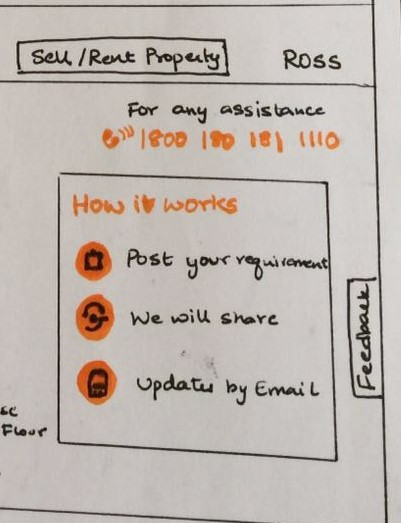 Sell/Rent Property ROSS
For any assistance
1800 180 181 1110
How it works
Post your requirement
We will share
Updates by Email
Feedback
se
Flour